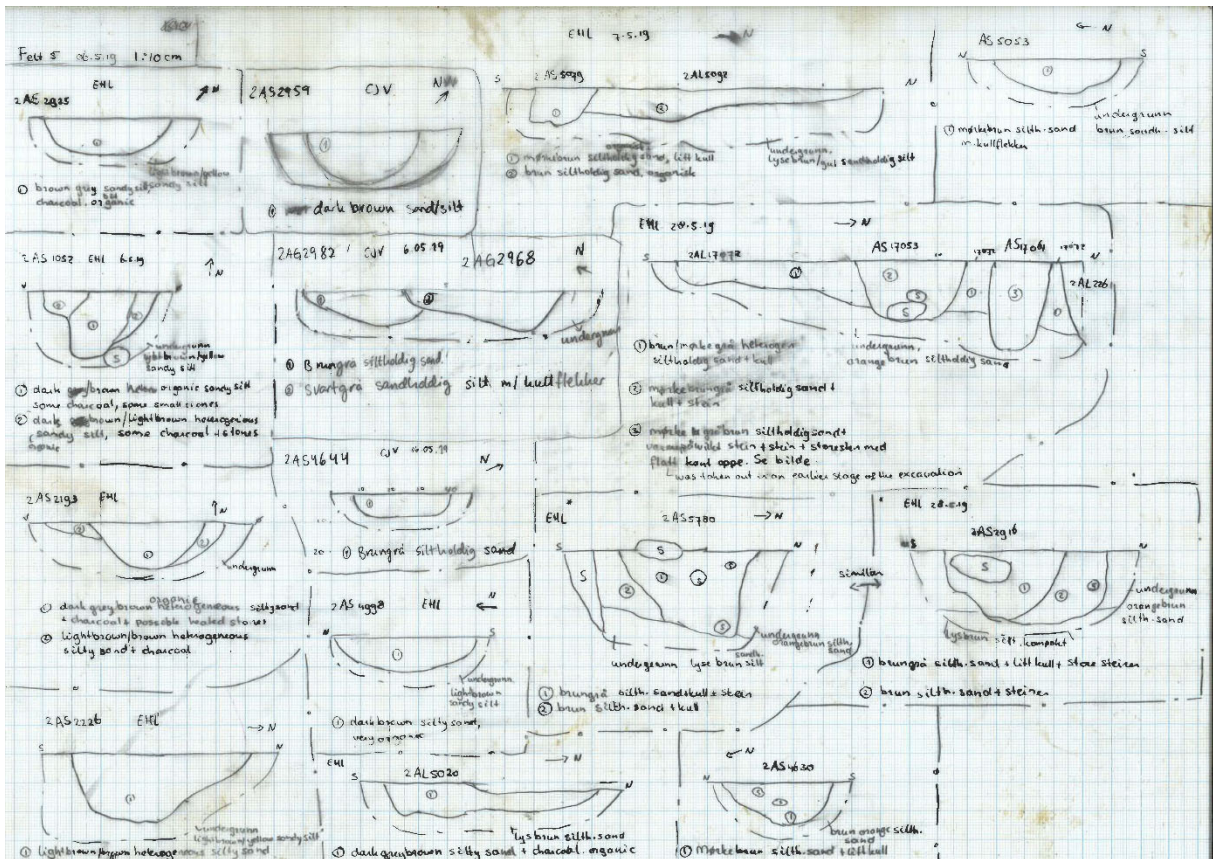 Felt 5 06.5.19 1:10cm
EHL
2AS2925
N
①
light brown/yellow
sandy silt
① brown grey sandy silt,
charcoal. organic
2AS2959 CJV NW
①
① dark brown sand/silt
EHL 7.5.19 N
S 2AS5079 2AL5092 N
① ②
undergrunn,
lysebrun/gul sandholdig silt
① mørkebrun siltholdig sand, litt kull
② brun siltholdig sand, organisk
← N
AS5053
N S
①
undergrunn
brun sandh. silt
① mørkebrun silth. sand
m. kullflekker
2AS1052 EHL 6.5.19
N
② ① ②
S
undergrunn
lightbrown/yellow
sandy silt
① dark grey/brown organic sandy silt
some charcoal, some small stones
② dark brown/lightbrown
sandy silt, some charcoal + stones
2AG2982 CJV 6.05.19 2AG2968 N
① ②
undergrunn
① Brungrå siltholdig sand.
② Svartgrå sandholdig silt m/ kullflekker
EHL 28.5.19 → N
S 2AL17072 AS17053 17072 AS17064 17072 N
2AL226
① ② S S ① ③ ①
undergrunn,
orangebrun siltholdig sand
① brun/mørkegrå heterogen
siltholdig sand + kull
② mørkebrungrå siltholdig sand +
kull + stein
③ mørke brun siltholdig sand +
stein + stor stein med
flatt kant oppe. Se bilde
was taken out in an earlier stage of the excavation
2AS2193 EHL
N
② ① ②
undergrunn
organic
① dark greybrown heterogeneous silty sand
+ charcoal + possible heated stones
② lightbrown/brown heterogeneous
silty sand + charcoal
2AS4644 CJV 16.05.19 N
①
20
① Brungrå siltholdig sand
2AS4998 EHL ← N
N S
①
undergrunn
lightbrown
sandy silt
① dark brown silty sand,
very organic
EHL 2AS5780 → N
S N
S S ② ① S
undergrunn
orangebrun silth.
sand
undergrunn lyse brun silt
sandh.
① brungrå silth. sand + kull + stein
② brun silth. sand + kull
similar
EHL 28.5.19
2AS2916
S N
S ① ② S
undergrunn
orangebrun
silth. sand
lysbrun silt. kompakt
① brungrå silth. sand + litt kull + store steiner
② brun silth. sand + steiner
2AS2226 EHL → N
S N
①
undergrunn
lightbrown/yellow sandy silt
① lightbrown/brown heterogeneous silty sand
EHL → N
S 2AL5020 N
①
lysbrun silth. sand
① dark greybrown silty sand + charcoal. organic
← N
2AS4630
N S
①
brun orange silth.
sand
① Mørkebrun silth. sand + litt kull